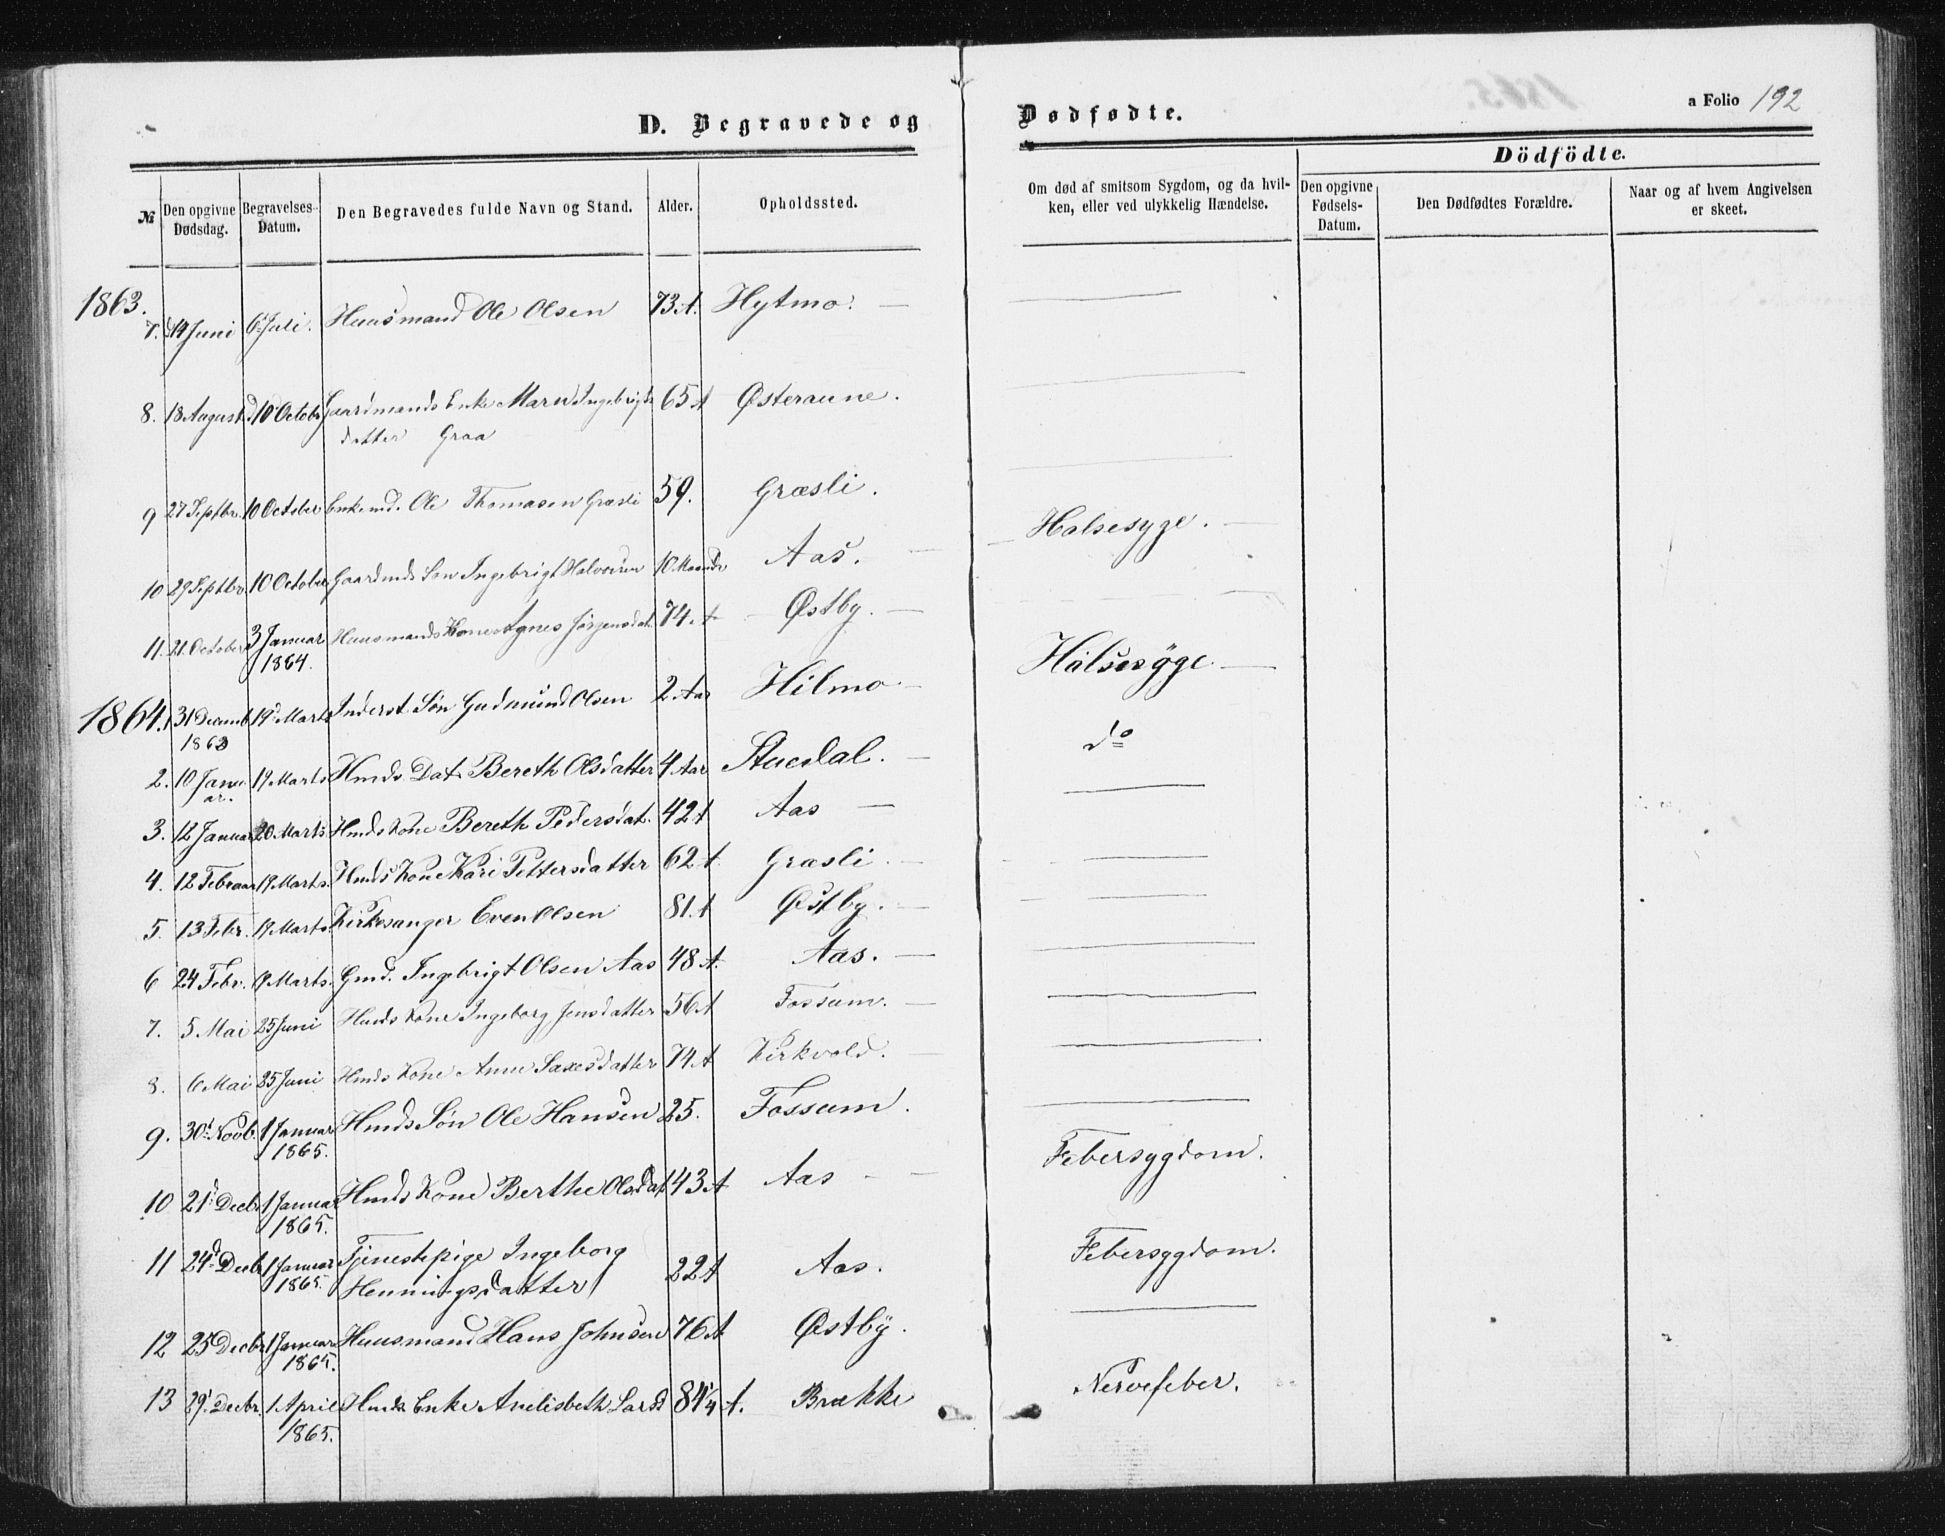 D. Begravede og Dødfødte.
a Folio 192
Dödfödte.
№ Den opgivne Dødsdag. Begravelses-Datum. Den Begravedes fulde Navn og Stand. Alder. Opholdssted. Om død af smitsom Sygdom, og da hvilken, eller ved ulykkelig Hændelse. Den opgivne Fødsels-Datum. Den Dødfødtes Forældre. Naar og af hvem Angivelsen er skeet.
1863.
7. 14 Juni 6 Juli. Huusmand Ole Olsen 73 A. Hytmo.
8. 18 August 10 Octobr Gaardmands Enke Marit Ingebrigts 65 A Østeraune.
datter Graa
9 27 Septbr. 10 October Enkemd. Ole Thomasen Græsli 59. Græsli.
10 29 Septbr 10 October Gaardmds Søn Ingebrigt Halvorsen 10 Maandr Aas. Halsesyge.
11. 21. October 3 Januar Huusmands Kone Agnes Jørgensdat. 74 A Østby.
1864.
1864. 1. 31 Decemb 19 Marts Inderst Søn Gudmund Olsen 2 Aar Hilmo Halsesyge
1863
2. 10 Janu- 19 Marts Hmds Dat. Bereth Olsdatter 4 Aar Stuedal. do
ar.
3. 12 Januar 20 Marts Hmds Kone Bereth Pedersdat. 42 A Aas
4. 12 Februar 19 Marts. Hmds Kone Kari Pettersdatter 62 A. Græsli
5. 13 Febr. 19 Marts. Kirkesanger Even Olsen 81. A Østby.
6 24 Febr. 19 Marts. Gmd. Ingebrigt Olsen Aas 48 A. Aas.
7. 5 Mai 25 Juni Hmds Kone Ingeborg Jensdatter 56 A Fossum.
8. 6 Mai 25 Juni Hmds Kone Anne Saxesdatter 74 A Kirkvold.
9. 30 Novb. 1 Januar Hmds Søn Ole Hansen 25. Fossum.
1865.
10 21 Decbr 1 Januar Hmds Kone Berthe Olsdat 43 A Aas Febersygdom.
1865.
11 24d Decbr 1 Januar Tjenestepige Ingeborg
1865. Henningsdatter 22 A Aas. Febersygdom.
12 25 Decbr 1 Januar Huusmand Hans Johnsen 76 A Østby.
1865.
13 29. Decbr. 1. April Hmds Enke Anelisbeth Larsd 84 1/4 A. Brække Nervefeber.
1865.